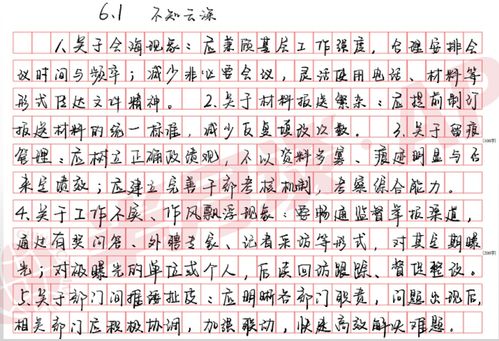 6.1 不知云深
人关于会海现象：应兼顾基层工作强度，合理安排会
议时间与频率；减少非必要会议，灵活使用电话、材料等
形式传达文件精神。 2.关于材料报送繁杂：应提前制订
报送材料的统一标准，减少反复修改次数。 3.关于留痕
管理：应树立正确政绩观，不以资料多寡、痕迹明显与否
来定绩效；应建立完善干部考核机制，考察综合能力。
4.关于工作不实、作风飘浮现象：要畅通监督举报渠道，
通过有奖问答、外聘专家、记者采访等形式，对其定期曝
光；对被曝光的单位或个人，后续回访跟踪、督促整改。
5.关于部门间推诿扯皮：应明晰各部门职责，问题出现后，
相关部门应积极协调，加强联动，快速高效解决难题。